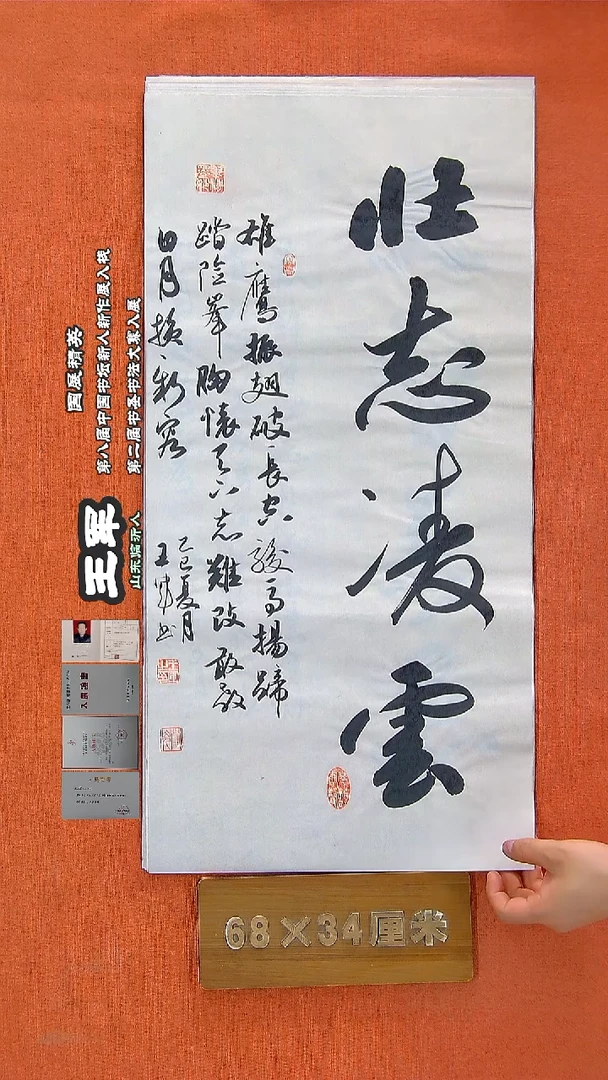 壮志凌雲
雄鹰振翅破長空駿馬揚蹄
踏险峯胸懷天下志難改敢教
日月換新容
乙巳夏月
王軍书
国展精英
第八届中国书坛新人新作展入展
第二届书圣书法大赛入展
王军
山东临沂人
68×34厘米